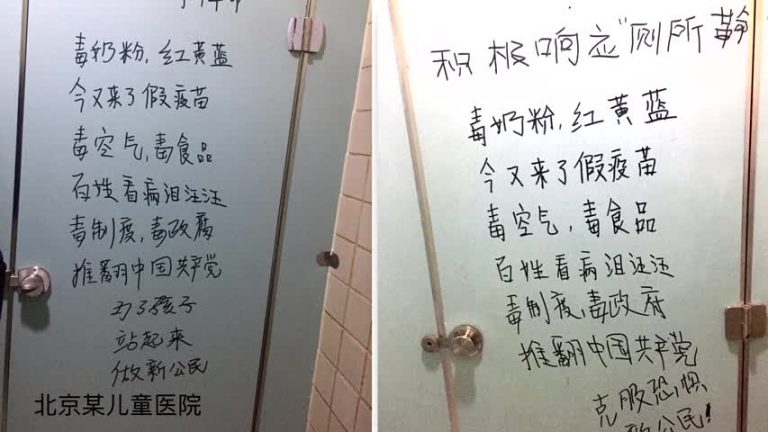 毒奶粉,红黄蓝
今又来了假疫苗
毒空气,毒食品
百姓看病泪汪汪
毒制度,毒政腐
推翻中国共产党
为了孩子
站起来
做新公民
北京某儿童医院
积极响应"厕所革命
毒奶粉,红黄蓝
今又来了假疫苗
毒空气,毒食品
百姓看病泪汪汪
毒制度,毒政府
推翻中国共产党
克服恐惧
新公民!